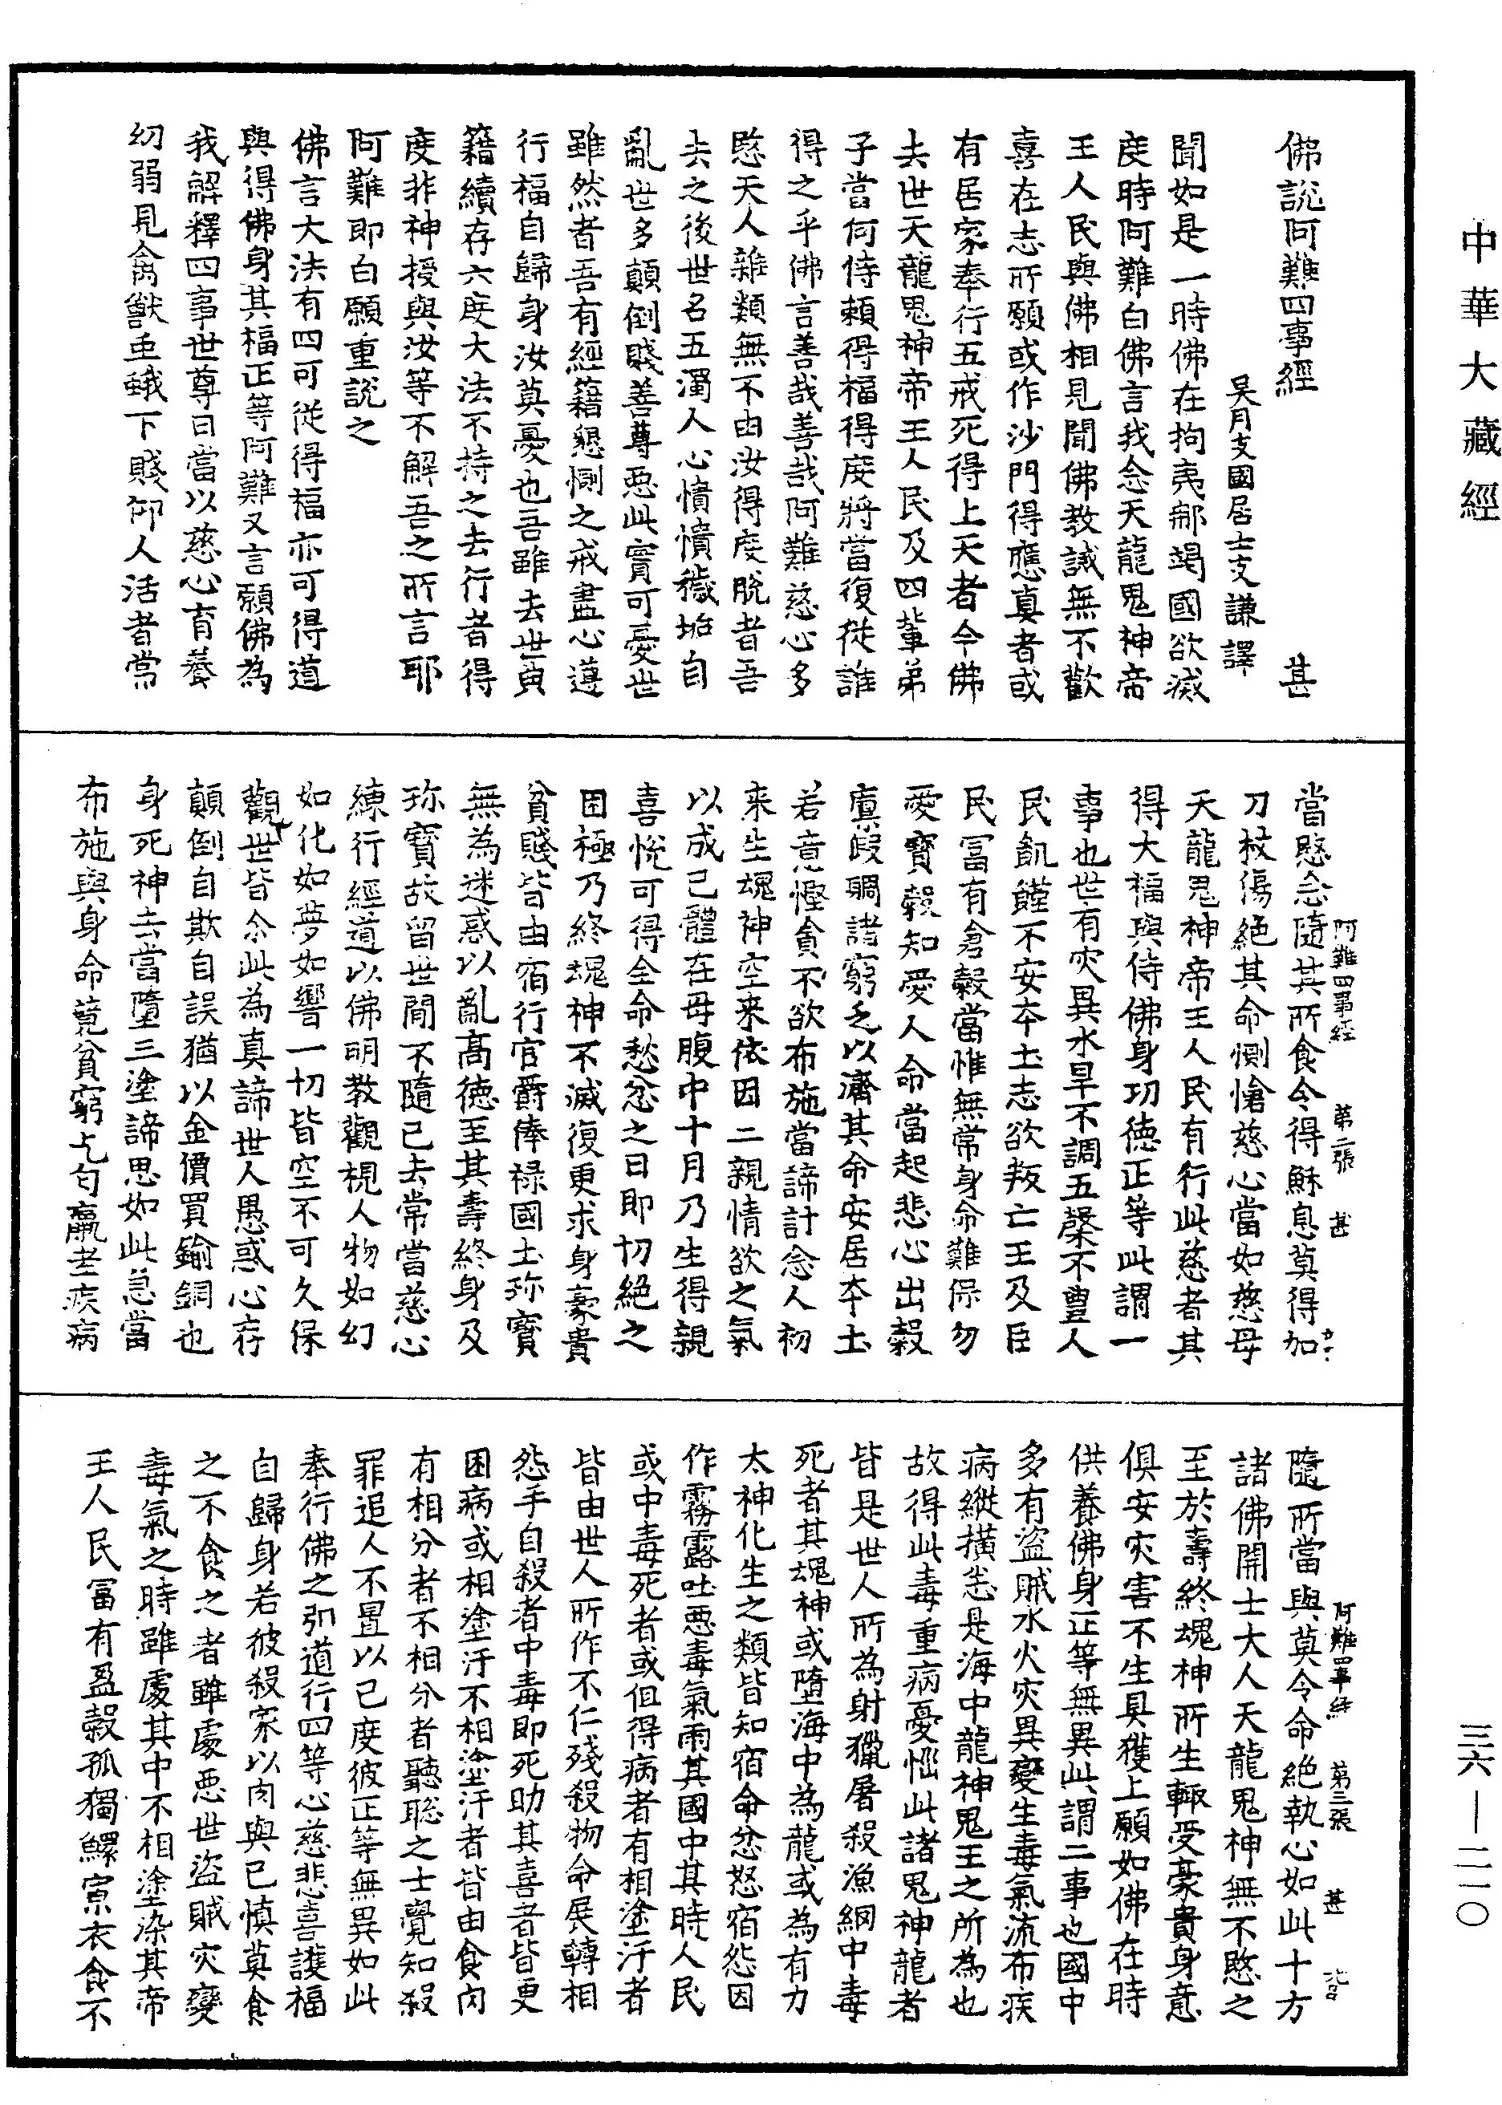 中華大藏經
佛說阿難四事經　甚
吳月支國居士支謙譯
聞如是一時佛在拘夷那竭國欲滅
度時阿難白佛言我念天龍鬼神帝
王人民與佛相見聞佛教誡無不歡
喜在志所願或作沙門得應真者或
有居家奉行五戒死得上天者今佛
去世天龍鬼神帝王人民及四輩弟
子當何侍賴得福得度將當復從誰
得之乎佛言善哉善哉阿難慈心多
愍天人雜類無不由汝得度脫者吾
去之後世名五濁人心憒憒穢垢自
亂世多顛倒賤善尊惡此實可憂世
雖然者吾有經籍懇惻之戒盡心遵
行福自歸身汝莫憂也吾雖去世典
籍續存六度大法不持之去行者得
度非神授與汝等不解吾之所言耶
阿難即白願重說之
佛言大法有四可從得福亦可得道
與得佛身其福正等阿難又言願佛為
我解釋四事世尊曰當以慈心育養
幼弱見禽獸虫蛾下賤仰人活者常
當愍念隨其所食令得穌息莫得加
刀杖傷絕其命惻愴慈心當如慈母
天龍鬼神帝王人民有行此慈者其
得大福與侍佛身功德正等此謂一
事也世有灾異水旱不調五槃不豐人
民飢饉不安本土志欲叛亡王及臣
民冨有倉穀當惟無常身命難保勿
愛寶穀知愛人命當起悲心出穀
廩假賙諸窮乏以濟其命安居本土
若意慳貪不欲布施當諦計念人初
来生魂神空来依因二親情欲之氣
以成己體在母腹中十月乃生得親
喜悅可得全命愁忿之日即切絕之
因極乃終魂神不滅復更求身豪貴
貧賤皆由宿行官爵俸祿國土珎寶
無為迷惑以亂高德至其壽終身及
珎寶故留世間不隨己去常當慈心
練行經道以佛明教觀視人物如幻
如化如夢如響一切皆空不可久保
觀世皆尒此為真諦世人愚惑心存
顛倒自欺自誤猶以金價買鍮銅也
身死神去當墮三塗諦思如此急當
布施與身命競貧窮乞匂羸老疾病
阿難四事經　第二張　甚
隨所當與莫令命絕執心如此十方
諸佛開士大人天龍鬼神無不愍之
至於壽終魂神所生輒受豪貴身意
俱安灾害不生具獲上願如佛在時
供養佛身正等無異此謂二事也國中
多有盜賊水火灾異變生毒氣流布疾
病縱橫恚是海中龍神鬼王之所為也
故得此毒重病憂惱此諸鬼神龍者
皆是世人所為射獵屠殺漁網中毒
死者其魂神或墮海中為龍或為有力
太神化生之類皆知宿命忿怒宿怨因
作霧露吐惡毒氣雨其國中其時人民
或中毒死者或但得病者有相塗汙者
皆由世人所作不仁殘殺物命展轉相
怨手自殺者中毒即死助其喜者皆更
困病或相塗汙不相塗汙者皆由食肉
有相分者不相分者聽聡之士覺知殺
罪追人不置以己度彼正等無異如此
奉行佛之訓道行四等心慈悲喜護福
自歸身若彼殺家以肉與己慎莫食
之不食之者雖處惡世盜賊灾變
毒氣之時雖處其中不相塗染其帝
王人民冨有盈穀孤獨鰥寡衣食不
阿難四事經　第三張　甚
三六—二一〇